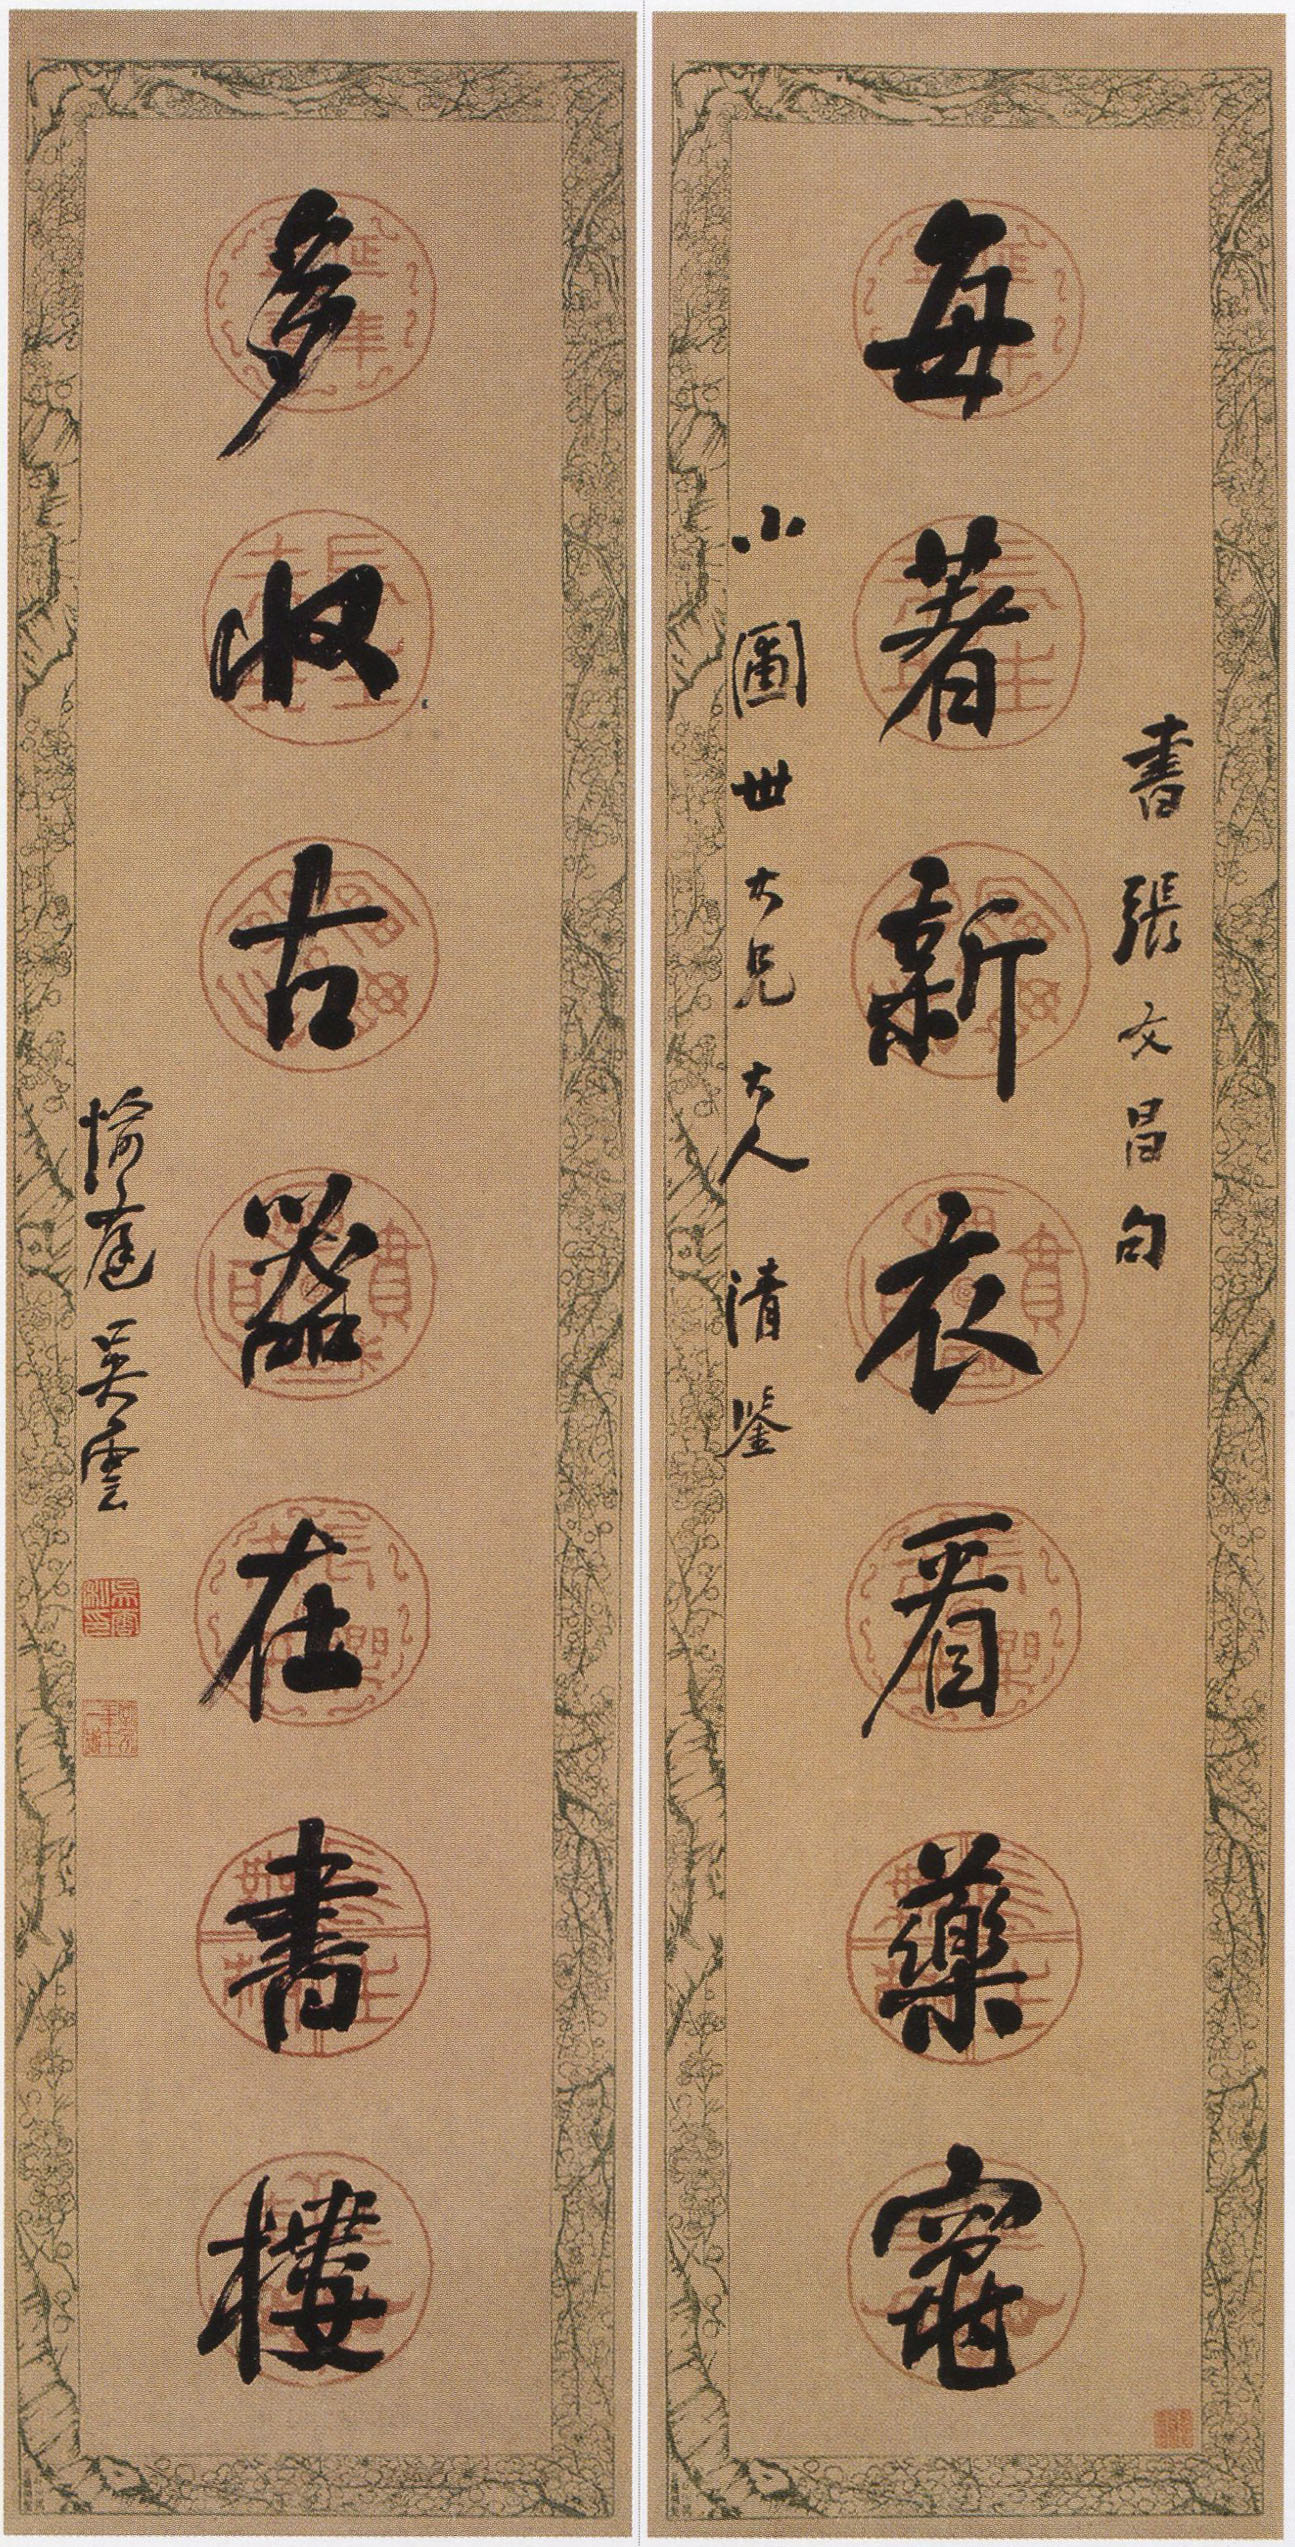 書張文昌句
每著新衣看藥竈
小圃世大兄大人清鑒
多收古器在書樓
愉庭吳雲
吳雲私印